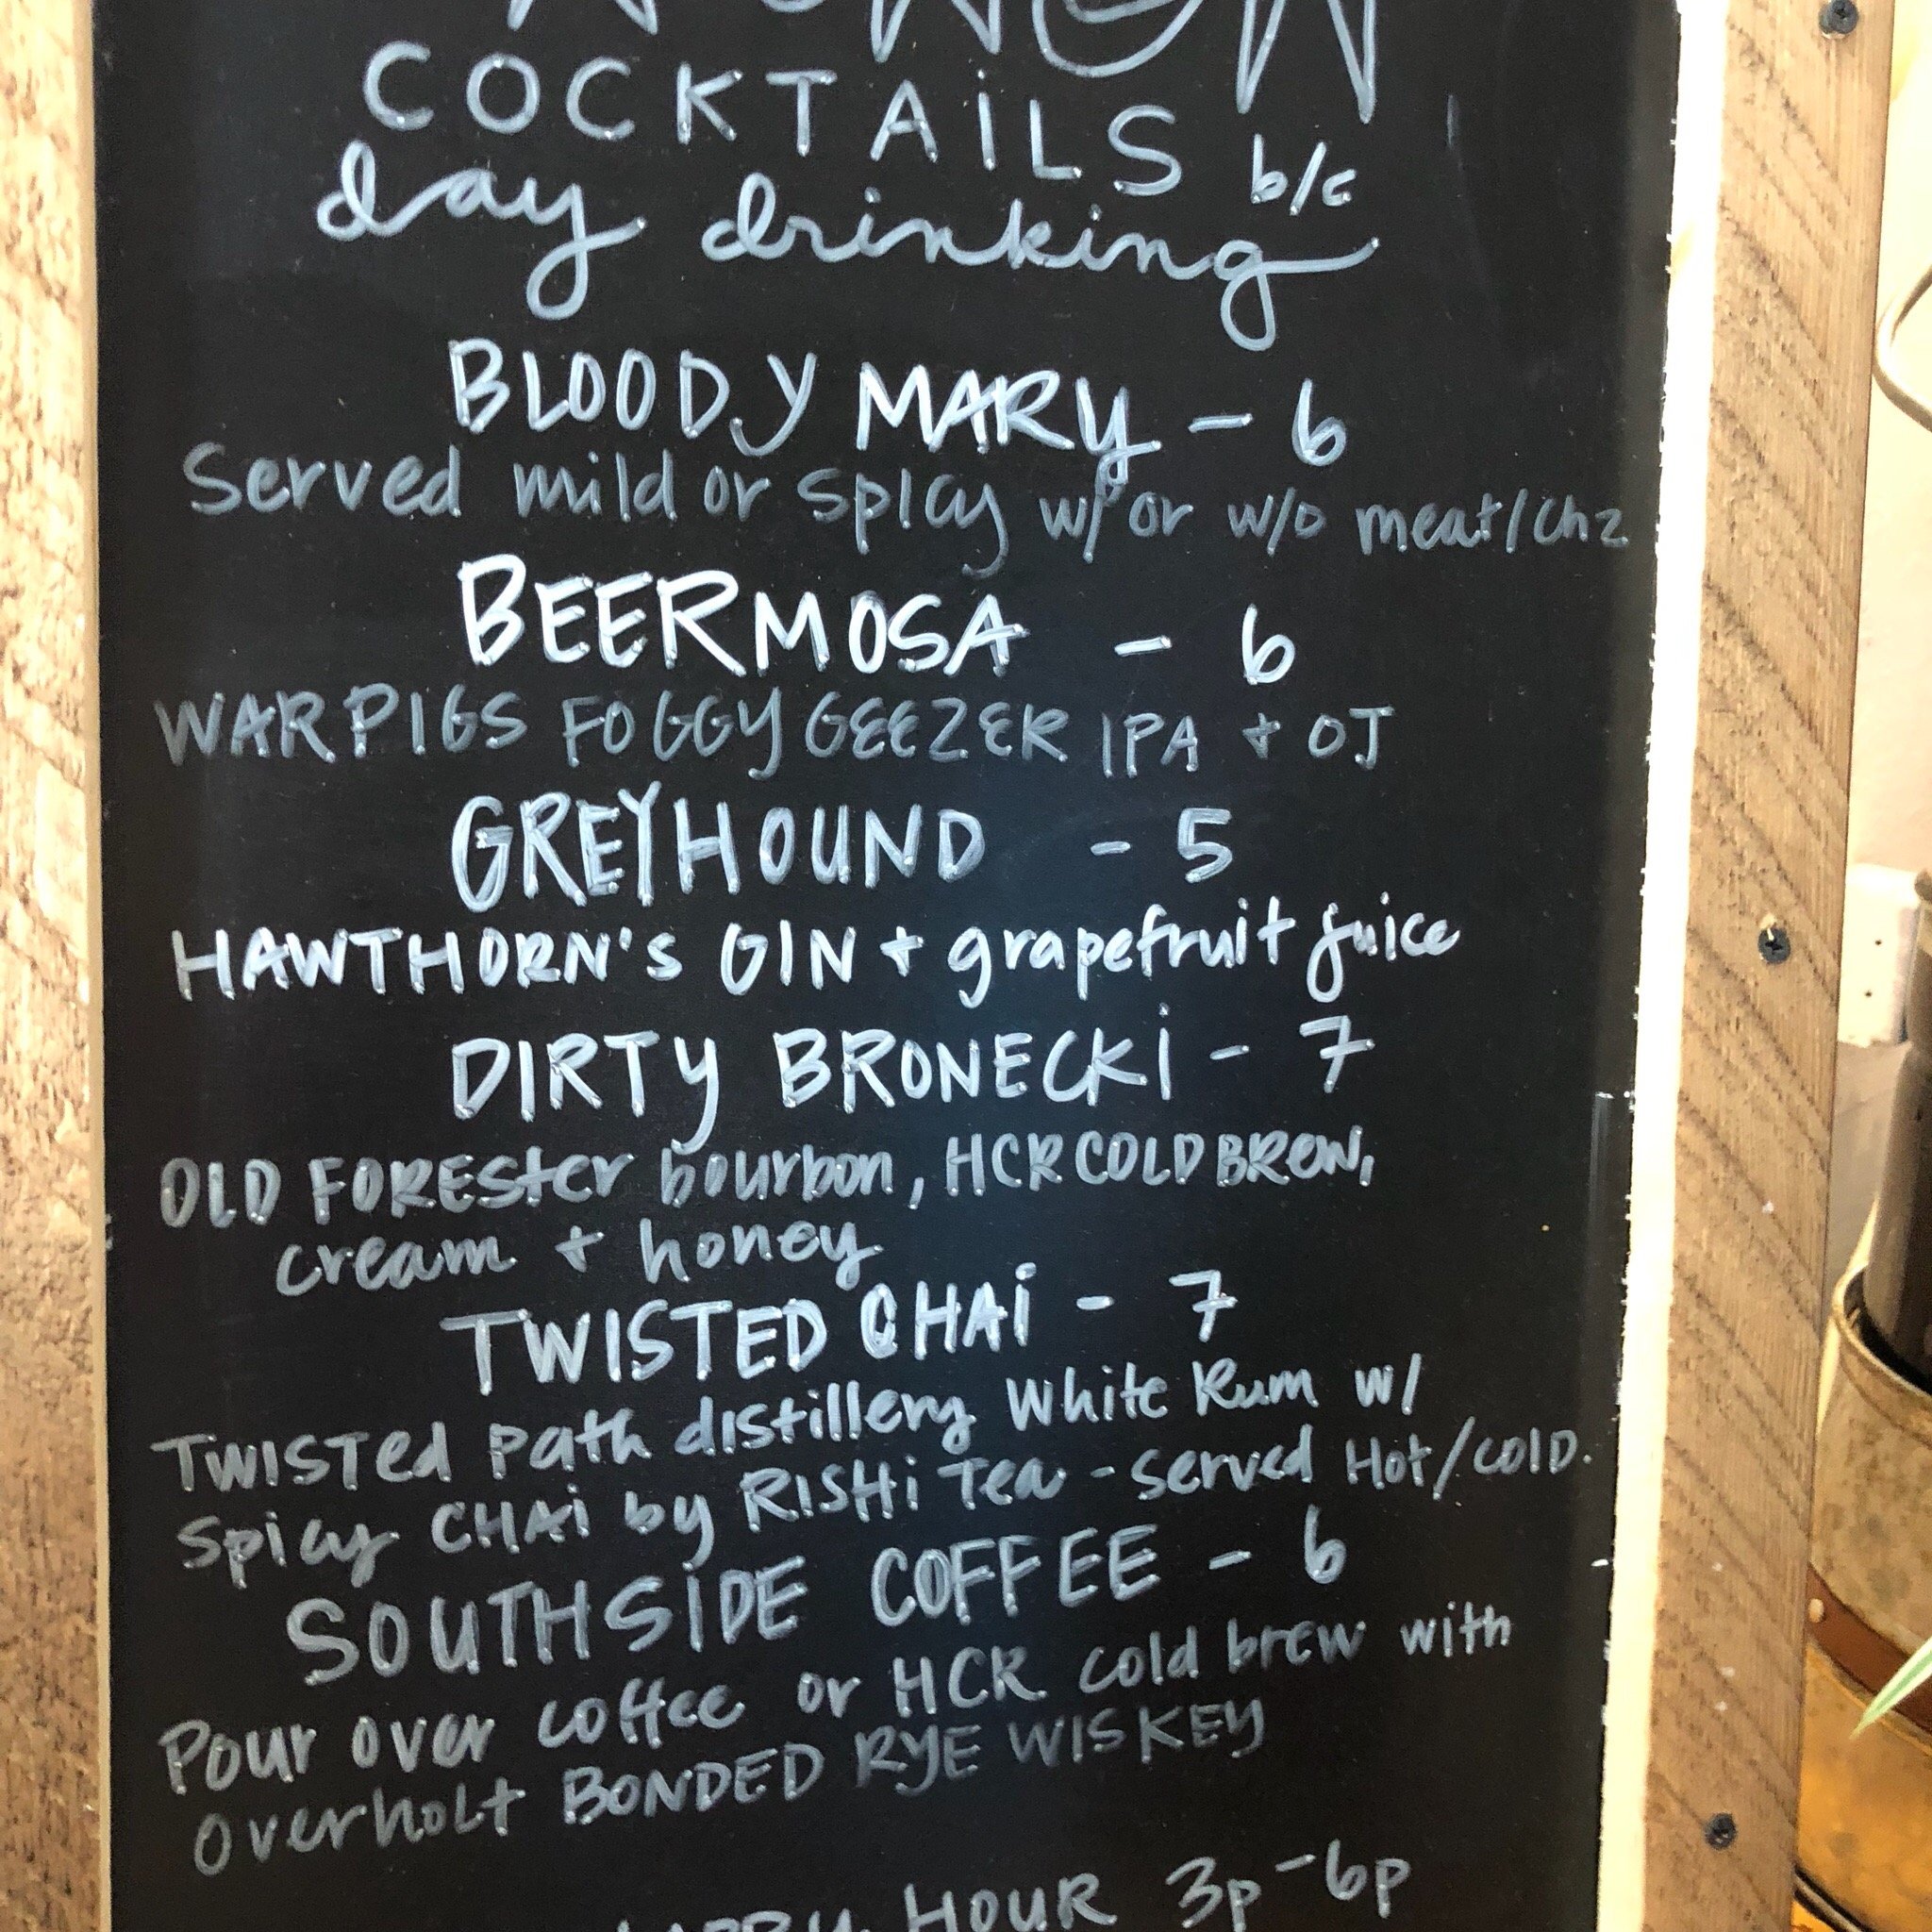 COCKTAiLS b/c
day drinking
BLOODY MARY - 6
Served mild or spicy w/ or w/o meat/chz
BEERMOSA - 6
WARPIGS FOGGY GEEZER IPA + OJ
GREYHOUND - 5
HAWTHORN'S GIN + grapefruit juice
DIRTY BRONECKi - 7
OLD FORESter bourbon, HCR COLD BREW,
cream + honey
TWISTED CHAi - 7
TWISTed path distillery White Rum w/
Spicy CHAi by RISHi Tea - served Hot/cOlD.
SOUTHSiDE COFFEE - 6
Pour over coffee or HCR cold brew with
overholt BONDED RYE WISKEY
HAPPY HOUR 3p-6p